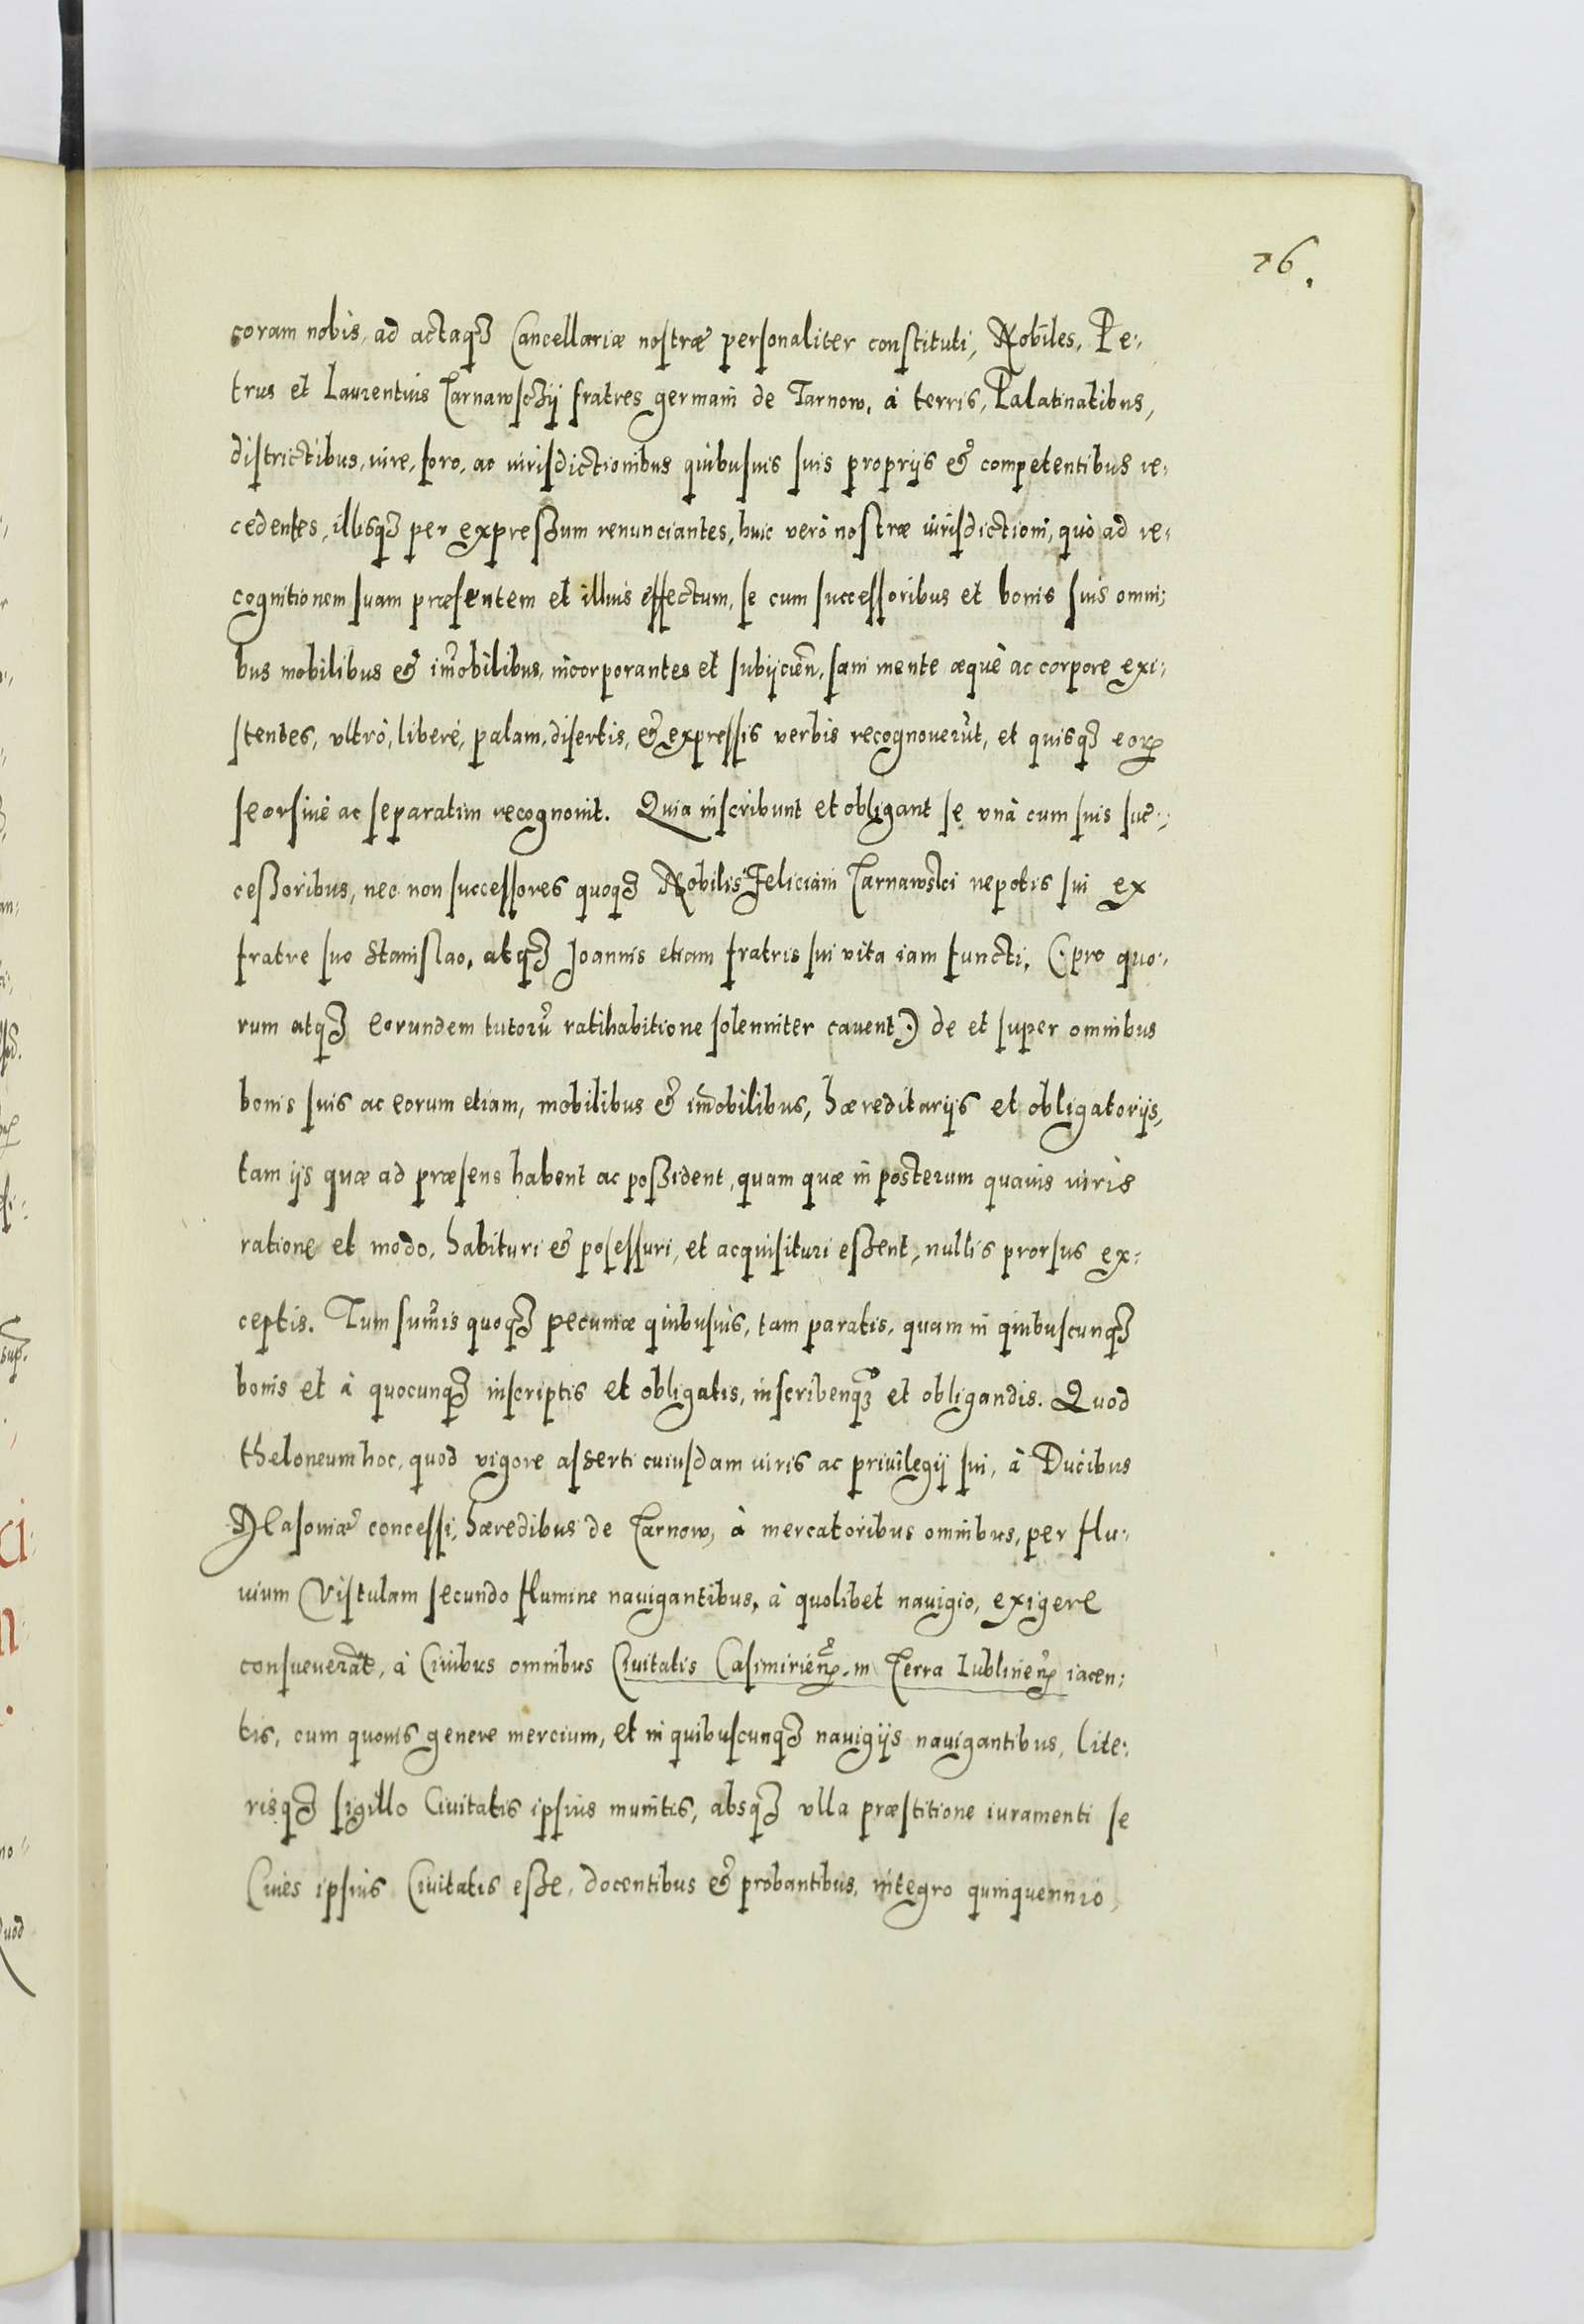 76.
coram nobis, ad actaq₃ Cancellariæ nostræ personaliter constituti, Nobiles, Pe-
trus et Laurentius Tarnawsczij fratres germani de Tarnow, à terris, Palatinatibus,
districtibus, iure, foro, ac iurisdictionibus quibusuis suis proprijs & competentibus re-
cedentes, illisq₃ per expreßum renunciantes, huic verò nostræ iurisdictioni, quò ad re-
cognitionem suam præsentem et illius effectum, se cum successoribus et bonis suis omni-
bus mobilibus & im̃obilibus, incorporantes et subijcien̄, sani mente æquè ac corpore exi-
stentes, vltrò, liberè, palam, disertis, & expressis verbis recognouerūt, et quisq₃ eoꝝ
seorsiuè ac separatim recognouit. Quia inscribunt et obligant se vnà cum suis suc-
ceßoribus, nec non successores quoq₃ Nobilis Feliciani Tarnawski nepotis sui ex
fratre suo Stanislao, atq₃ Joannis etiam fratris sui vita iam functi, (pro quo-
rum atq₃ eorundem tutorū ratihabitione solenniter cauent) de et super omnibus
bonis suis ac eorum etiam, mobilibus & im̃obilibus, hæreditarijs et obligatorijs,
tam ijs quæ ad præsens habent ac poßident, quam quæ in posterum quauis iuris
ratione et modo, habituri & posessuri, et acquisituri eßent, nullis prorsus ex-
ceptis. Tum sum̃is quoq₃ pecuniæ quibusuis, tam paratis, quam in quibuscunq₃
bonis et à quocunq₃ inscriptis et obligatis, inscribenq₃ et obligandis. Quod
theloneum hoc, quod vigore asserti cuiusdam iuris ac priuilegij sui, à Ducibus
Masouiæ concessi, hæredibus de Tarnow, à mercatoribus omnibus, per flu-
uium Vistulam secundo flumine nauigantibus, à quolibet nauigio, exigere
consueuerāt, à Ciuibus omnibus Ciuitatis Casimirień. in Terra Lublineń iacen-
tis, cum quouis genere mercium, et in quibuscunq₃ nauigijs nauigantibus, lite-
risq₃ sigillo Ciuitatis ipsius munitis, absq₃ vlla præstitione iuramenti se
Ciues ipsius Ciuitatis eße, docentibus & probantibus, integro quinquennio,